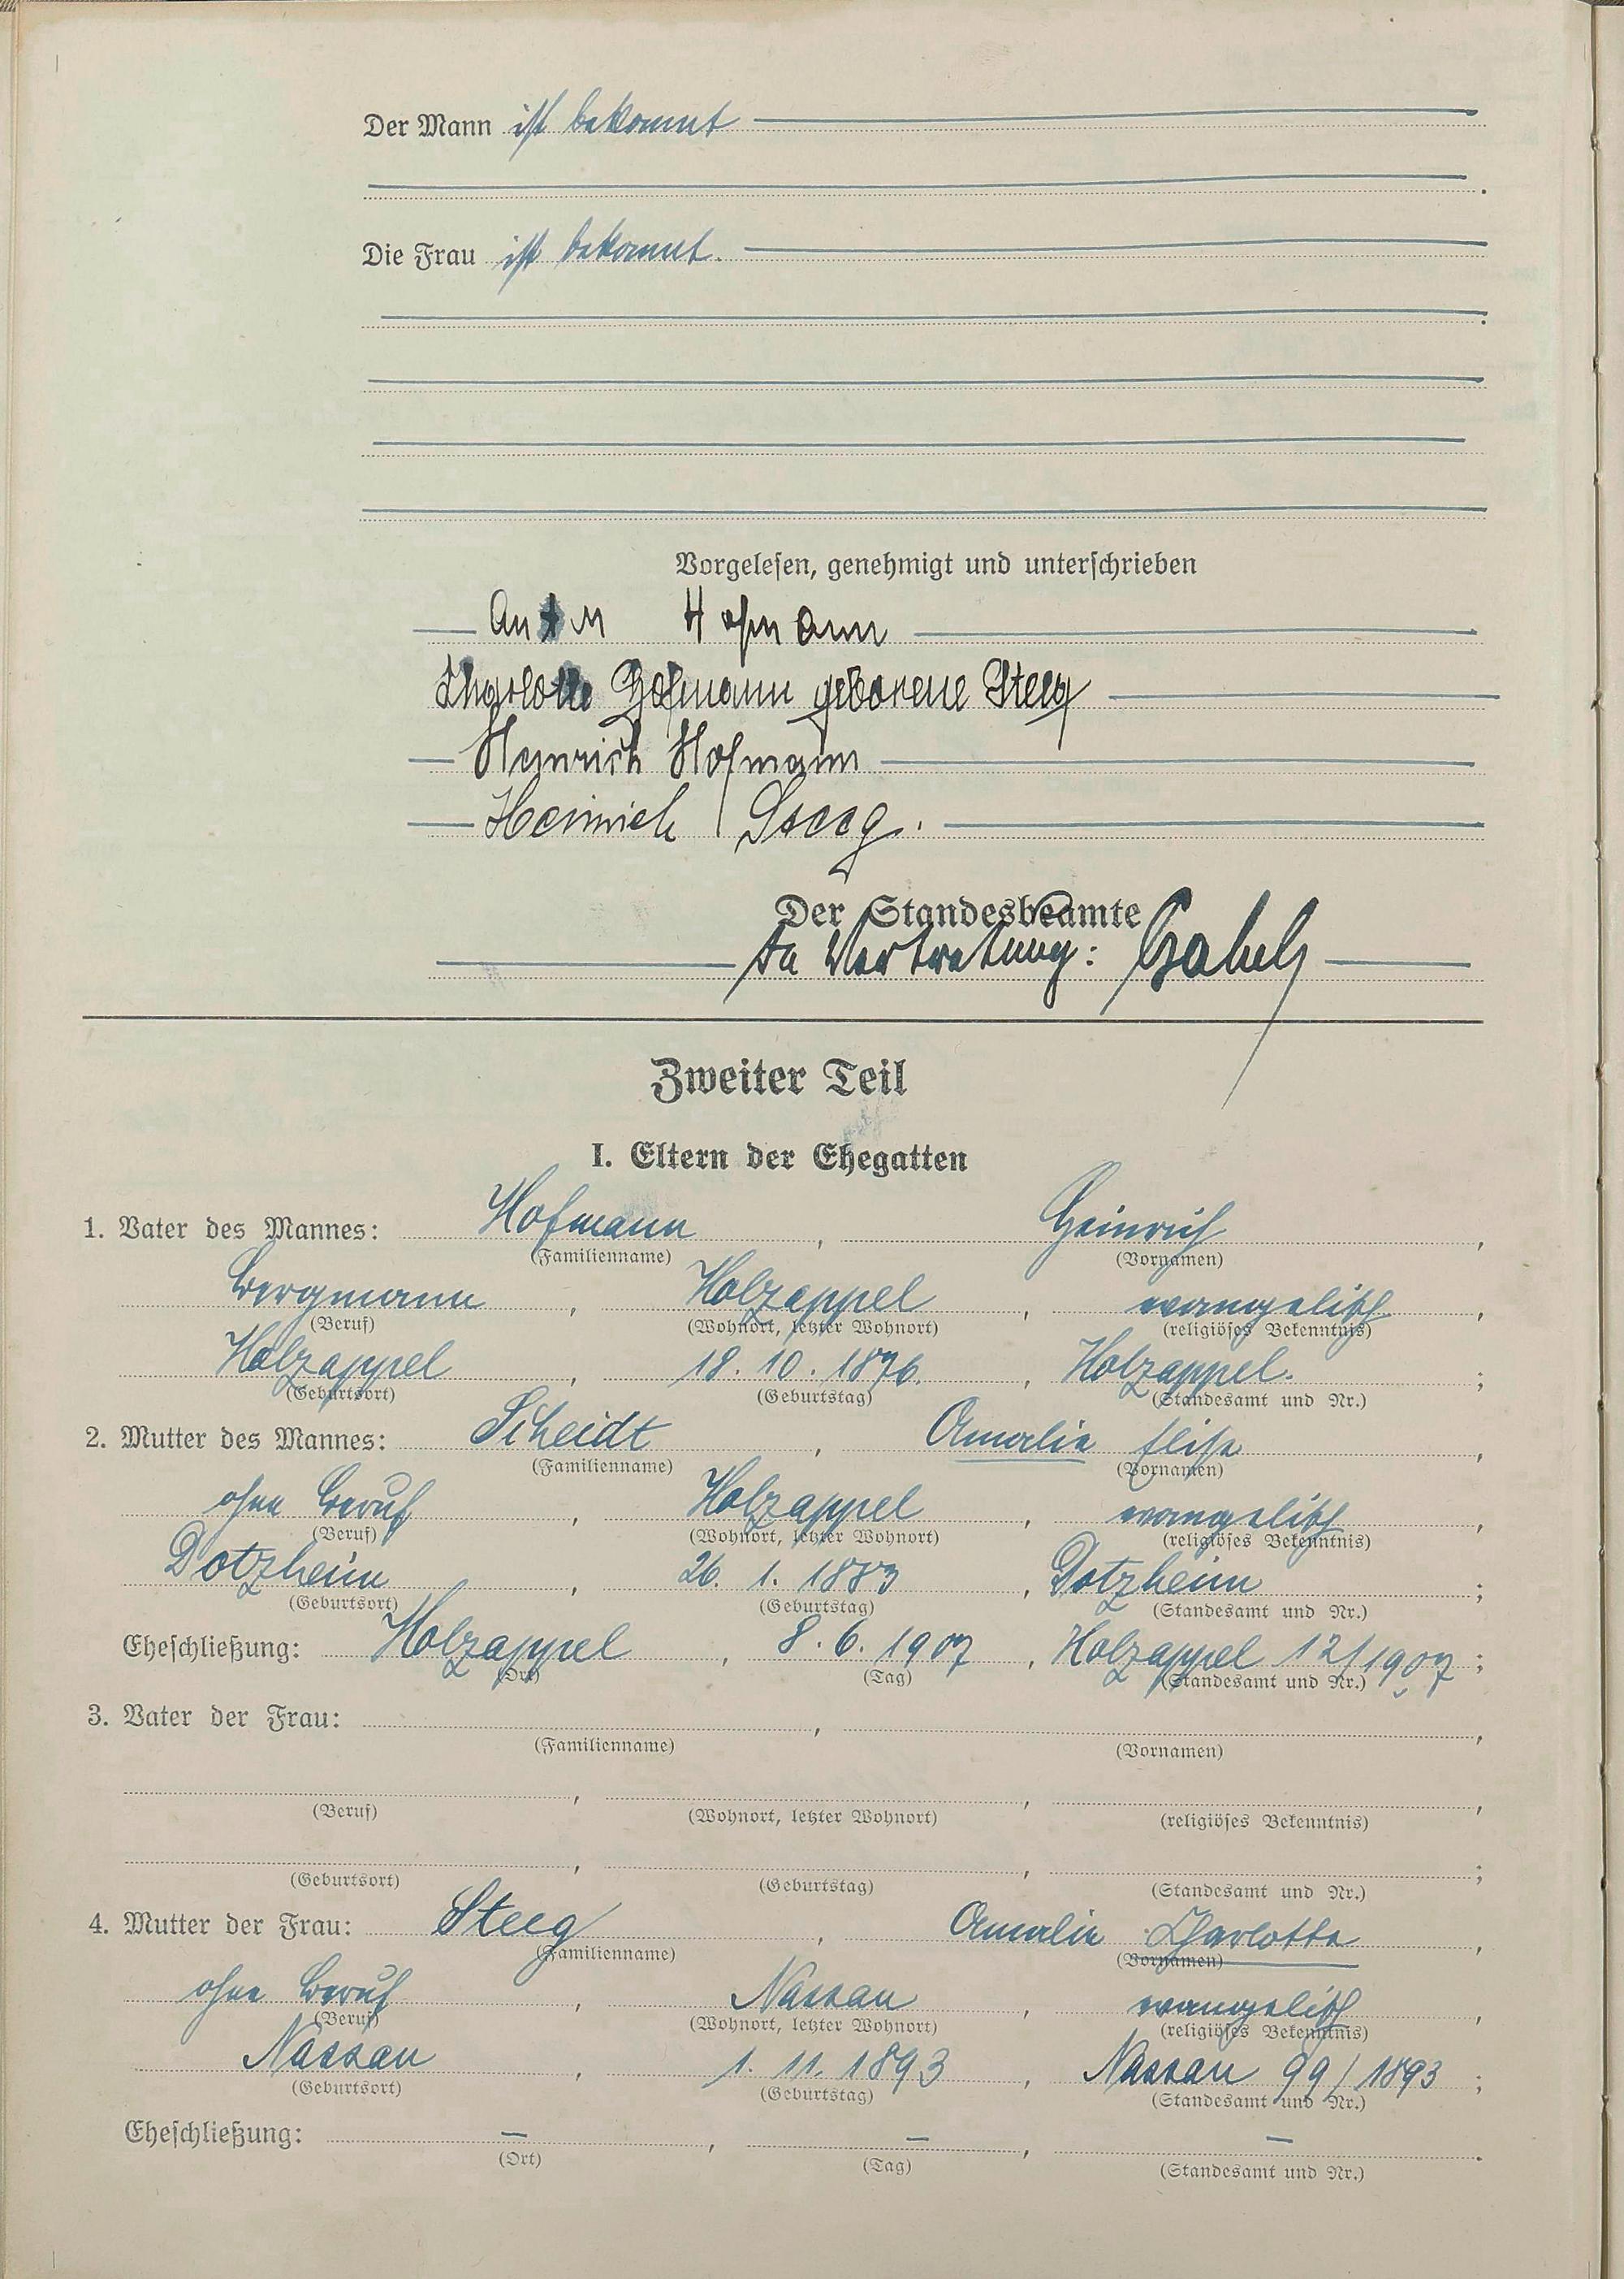 Der Mann ist bekannt
Die Frau ist bekannt.
Vorgelesen, genehmigt und unterschrieben
Anton Hofmann
Charlotte Hofmann geborene Steeg
Heinrich Hofmann
Heinrich Steeg.
Der Standesbeamte
In Vertretung:
Zweiter Teil
I. Eltern der Ehegatten
1. Vater des Mannes: Hofmann, Heinrich,
(Familienname) (Vornamen)
Bergmann, Holzappel, evangelisch,
(Beruf) (Wohnort, letzter Wohnort) (religiöses Bekenntnis)
Holzappel, 18. 10. 1876., Holzappel. ;
(Geburtsort) (Geburtstag) (Standesamt und Nr.)
2. Mutter des Mannes: Scheidt, Amalie Elise,
(Familienname) (Vornamen)
ohne Beruf, Holzappel, evangelisch,
(Beruf) (Wohnort, letzter Wohnort) (religiöses Bekenntnis)
Dotzheim, 26. 1. 1883, Dotzheim ;
(Geburtsort) (Geburtstag) (Standesamt und Nr.)
Eheschließung: Holzappel, 8. 6. 1907, Holzappel 12/1907 ;
(Ort) (Tag) (Standesamt und Nr.)
3. Vater der Frau: , ,
(Familienname) (Vornamen)
, , ,
(Beruf) (Wohnort, letzter Wohnort) (religiöses Bekenntnis)
, , ;
(Geburtsort) (Geburtstag) (Standesamt und Nr.)
4. Mutter der Frau: Steeg, Amalie Charlotte,
(Familienname) (Vornamen)
ohne Beruf, Nassau, evangelisch,
(Beruf) (Wohnort, letzter Wohnort) (religiöses Bekenntnis)
Nassau, 1. 11. 1893, Nassau 99/1893 ;
(Geburtsort) (Geburtstag) (Standesamt und Nr.)
Eheschließung: –, –, – .
(Ort) (Tag) (Standesamt und Nr.)